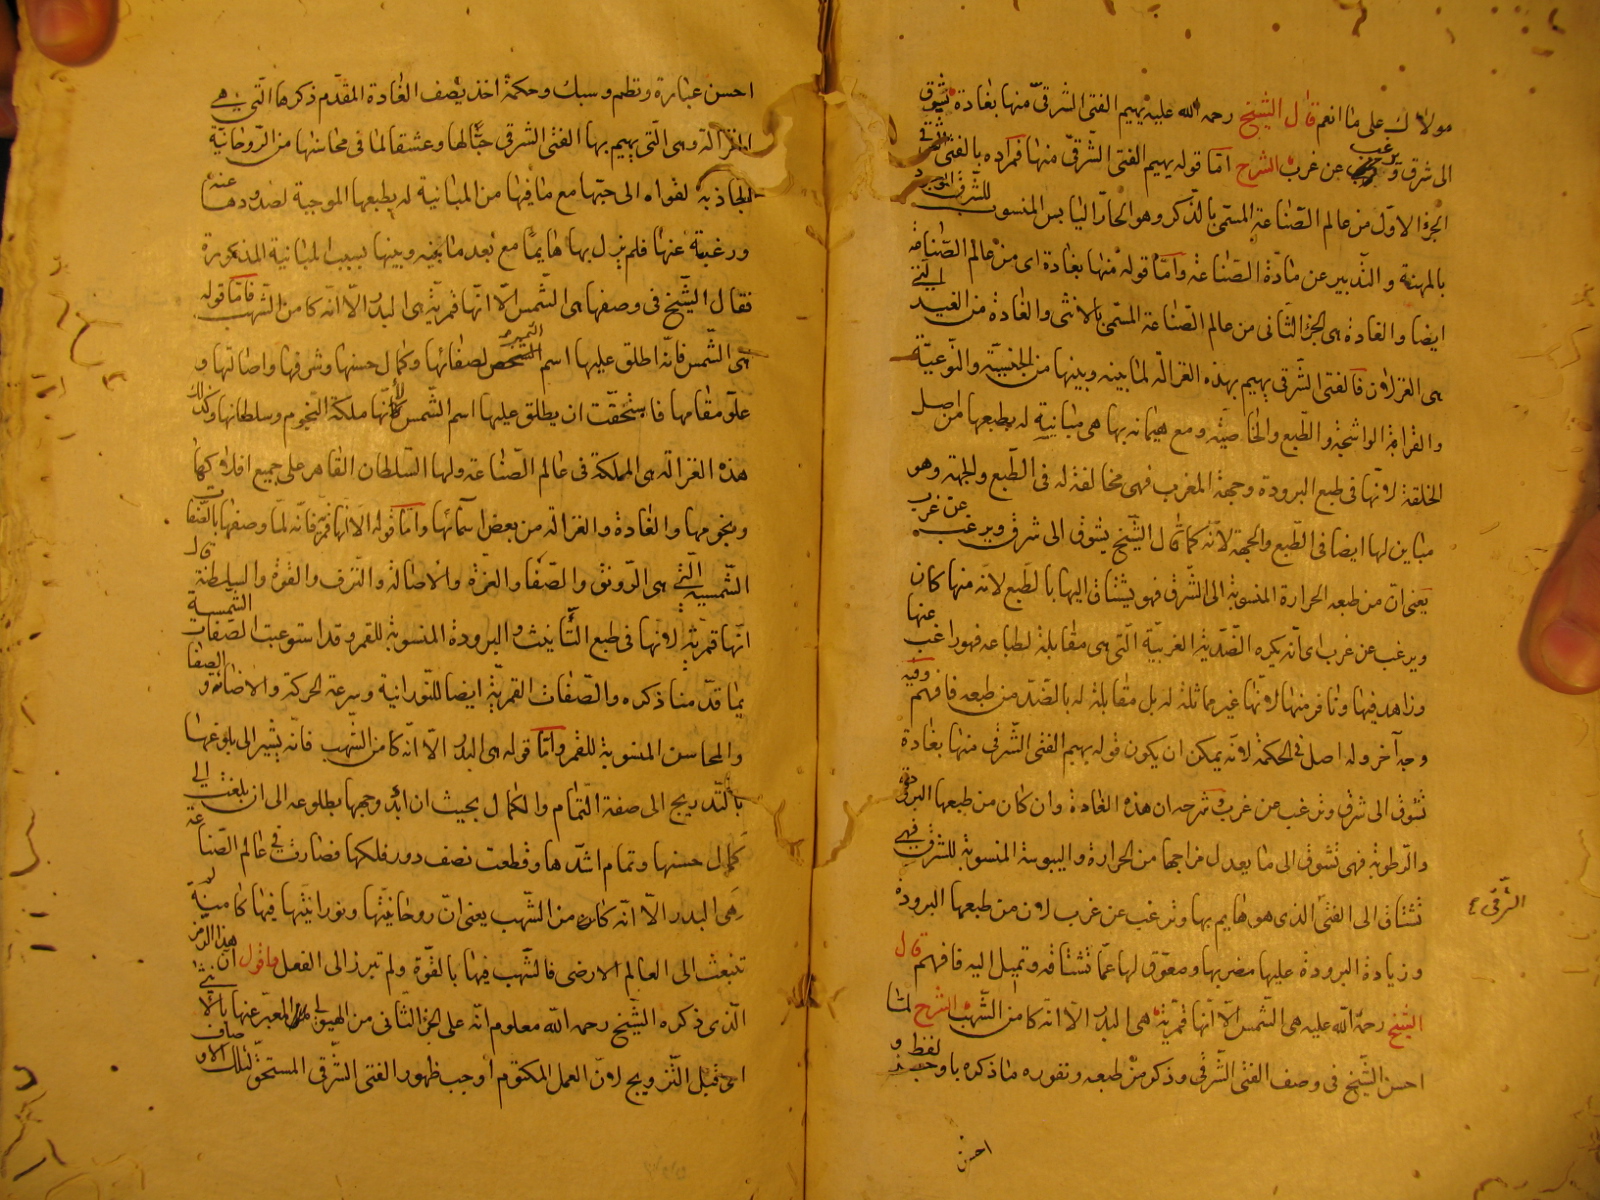 مولاك على ما انعم قال الشيخ رحمة الله عليه يهيم الفتى الشرقى منها بغادة تشوق
الى شرق وترغب عن غرب الشرح اما قوله يهيم الفتى الشرقى منها فمراده بالفتى الشرقى
الجزؤ الاول من عالم الصناعة المسمى بالذكر وهو الحار اليابس المنسوب للشرق الموجود
بالمهنة والتدبير عن مادة الصناعة واما قوله منها بغادة اى من عالم الصناعة
ايضا والغادة هى الجزؤ الثانى من عالم الصناعة المسمى بالانثى والغادة من الغيد التى
هى الغزلان فالفتى الشرقى يهيم بهذه الغزالة لما بينه وبينها من الجنسية والنوعية
والقرابة الواشجة والطبع والخاصية ومع هيمانه بها هى مباينة له بطبعها من اصل
الخلقة لانها فى طبع البرودة وجهة المغرب فهى مخالفة له فى الطبع والجهة وهو
مباين لها ايضا فى الطبع والجهة لانه كما قال الشيخ يشوق الى شرق ويرغب عن غرب
يعنى ان من طبعه الحرارة المنسوبة الى الشرق فهو يشتاق اليها بالطبع لانه منها كان
ويرغب عن غرب اى انه يكره الضدية الغربية التى هى مقابلة لطباعه فهو راغب عنها
وزاهد فيها ونافر منها لانها غير مماثلة له بل مقابلة له بالضد من طبعه فافهم وفيه
وجه آخر وله اصل فى الحكمة لانه يمكن ان يكون قوله يهيم الفتى الشرقى منها بغادة
تشوق الى شرق وترغب عن غرب شرحه ان هذه الغادة وان كان من طبعها البرودة
والرطوبة فهى تشوق الى ما يعدل مزاجها من الحرارة واليبوسة المنسوبة للشرق فهى
تشتاق الى الفتى الذى هو هايم بها وترغب عن غرب لان من طبعها البرودة
الشرقى
وزيادة البرودة عليها مضر بها ومعوق لها عما تشتاقه وتميل اليه فافهم قال
الشيخ رحمة الله عليه هى الشمس الا انها قمرية هى البدر الا انه كامن الشهب الشرح لما
احسن الشيخ فى وصف الفتى الشرقى وذكر من طبعه ونفوره ما ذكره باوجز لفظ و
احسن
احسن عبارة ونظم وسبك وحكمة اخذ يصف الغادة المقدم ذكرها التى هى
الغزالة وهى التى يهيم بها الفتى الشرقى حبا لها وعشقا لما فى محاسنها من الروحانية
الجاذبة لقواه الى حبها مع ما فيها من المباينة له بطبعها الموجبة لصدودها عنه
ورغبته عنها فلم يزل بها هايما مع بعد ما بينه وبينها بسبب المباينة المذكورة
فقال الشيخ فى وصفها هى الشمس الا انها قمرية هى البدر الا انه كامن الشهب فاما قوله
هى الشمس فانه اطلق عليها اسم الشمس لصفائها وكمال حسنها وشرفها واصالتها و
علو مقامها فاستحقت ان يطلق عليها اسم الشمس لانها ملكة النجوم وسلطانها وكذلك
هذه الغزالة هى المملكة فى عالم الصناعة ولها السلطان القاهر على جميع افلاكها
ونجومها والغادة والغزالة من بعض اسمائها واما قوله الا انها قمرية فانه لما وصفها بالصفات
الشمسية التى هى الرونق والصفا والعزة والاصالة والشرف والقوة والسلطنة قال
انها قمرية لانها فى طبع التأنيث والبرودة المنسوبة للقمر وقد استوعبت الصفات الشمسية
بما قدمنا ذكره والصفات القمرية ايضا للنورانية وسرعة الحركة والاضاءة والصفا
والمحاسن المنسوبة للقمر واما قوله هى البدر الا انه كامن الشهب فانه يشير الى بلوغها
بالتدريج الى صفة التمام والكمال بحيث ان ابدا وجهها بطلوعه الى ان بلغت الى
كمال حسنها وتمام اشدها وقطعت نصف دور فلكها فصارت فى عالم الصناعة
هى البدر الا انه كامن الشهب يعنى ان روحانيتها ونورانيتها فيها كامنة لم
تنبعث الى العالم الارضى فالشهب فيها بالقوة ولم تبرز الى الفعل فاقول ان هذا الرمز
الذى ذكره الشيخ رحمه الله معلوم انه على الجزؤ الثانى من الهيولى المعبر عنها بالانثى
قبل التزويج لان العمل المكتوم اوجب ظهور الفتى الشرقى المستحق لتلك الاوصاف